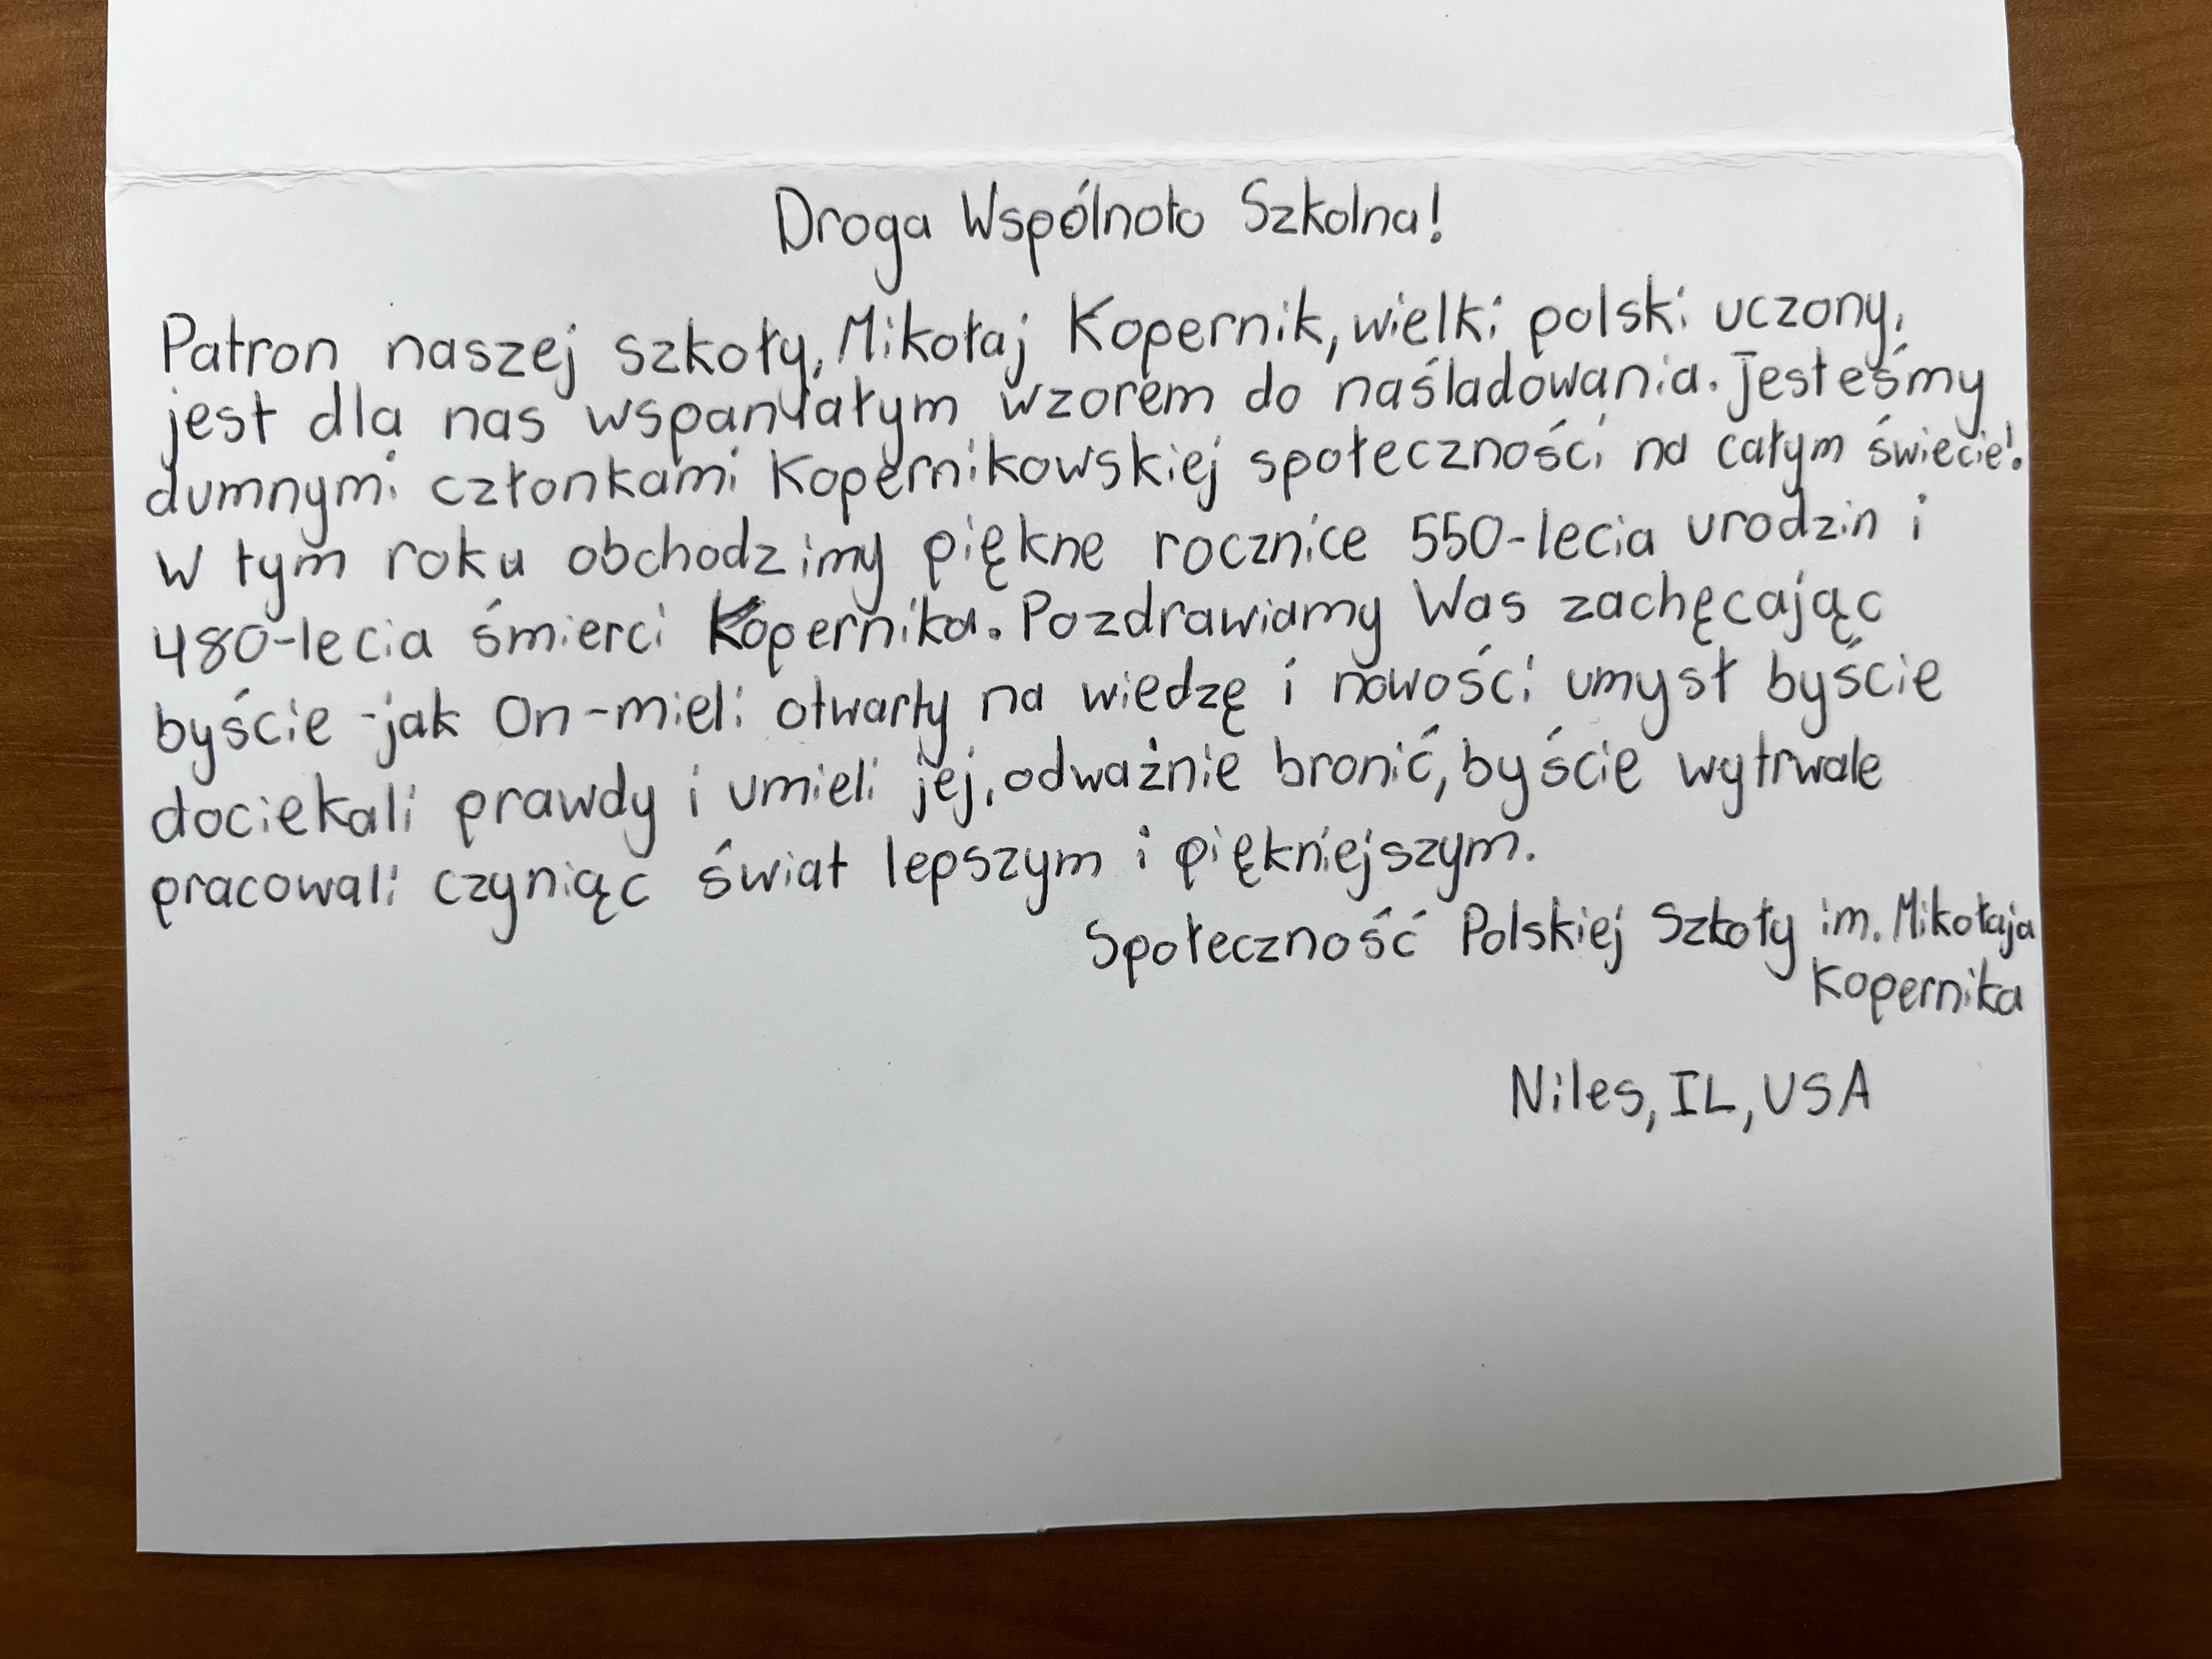 Droga Wspólnoto Szkolna!
Patron naszej szkoły, Mikołaj Kopernik, wielki polski uczony,
jest dla nas wspaniałym wzorem do naśladowania. Jesteśmy
dumnymi członkami Kopernikowskiej społeczności na całym świecie!
W tym roku obchodzimy piękne rocznice 550-lecia urodzin i
480-lecia śmierci Kopernika. Pozdrawiamy Was zachęcając
byście -jak On-mieli otwarty na wiedzę i nowości umysł byście
dociekali prawdy i umieli jej, odważnie bronić, byście wytrwale
pracowali czyniąc świat lepszym i piękniejszym.
Społeczność Polskiej Szkoły im. Mikołaja
Kopernika
Niles, IL, USA